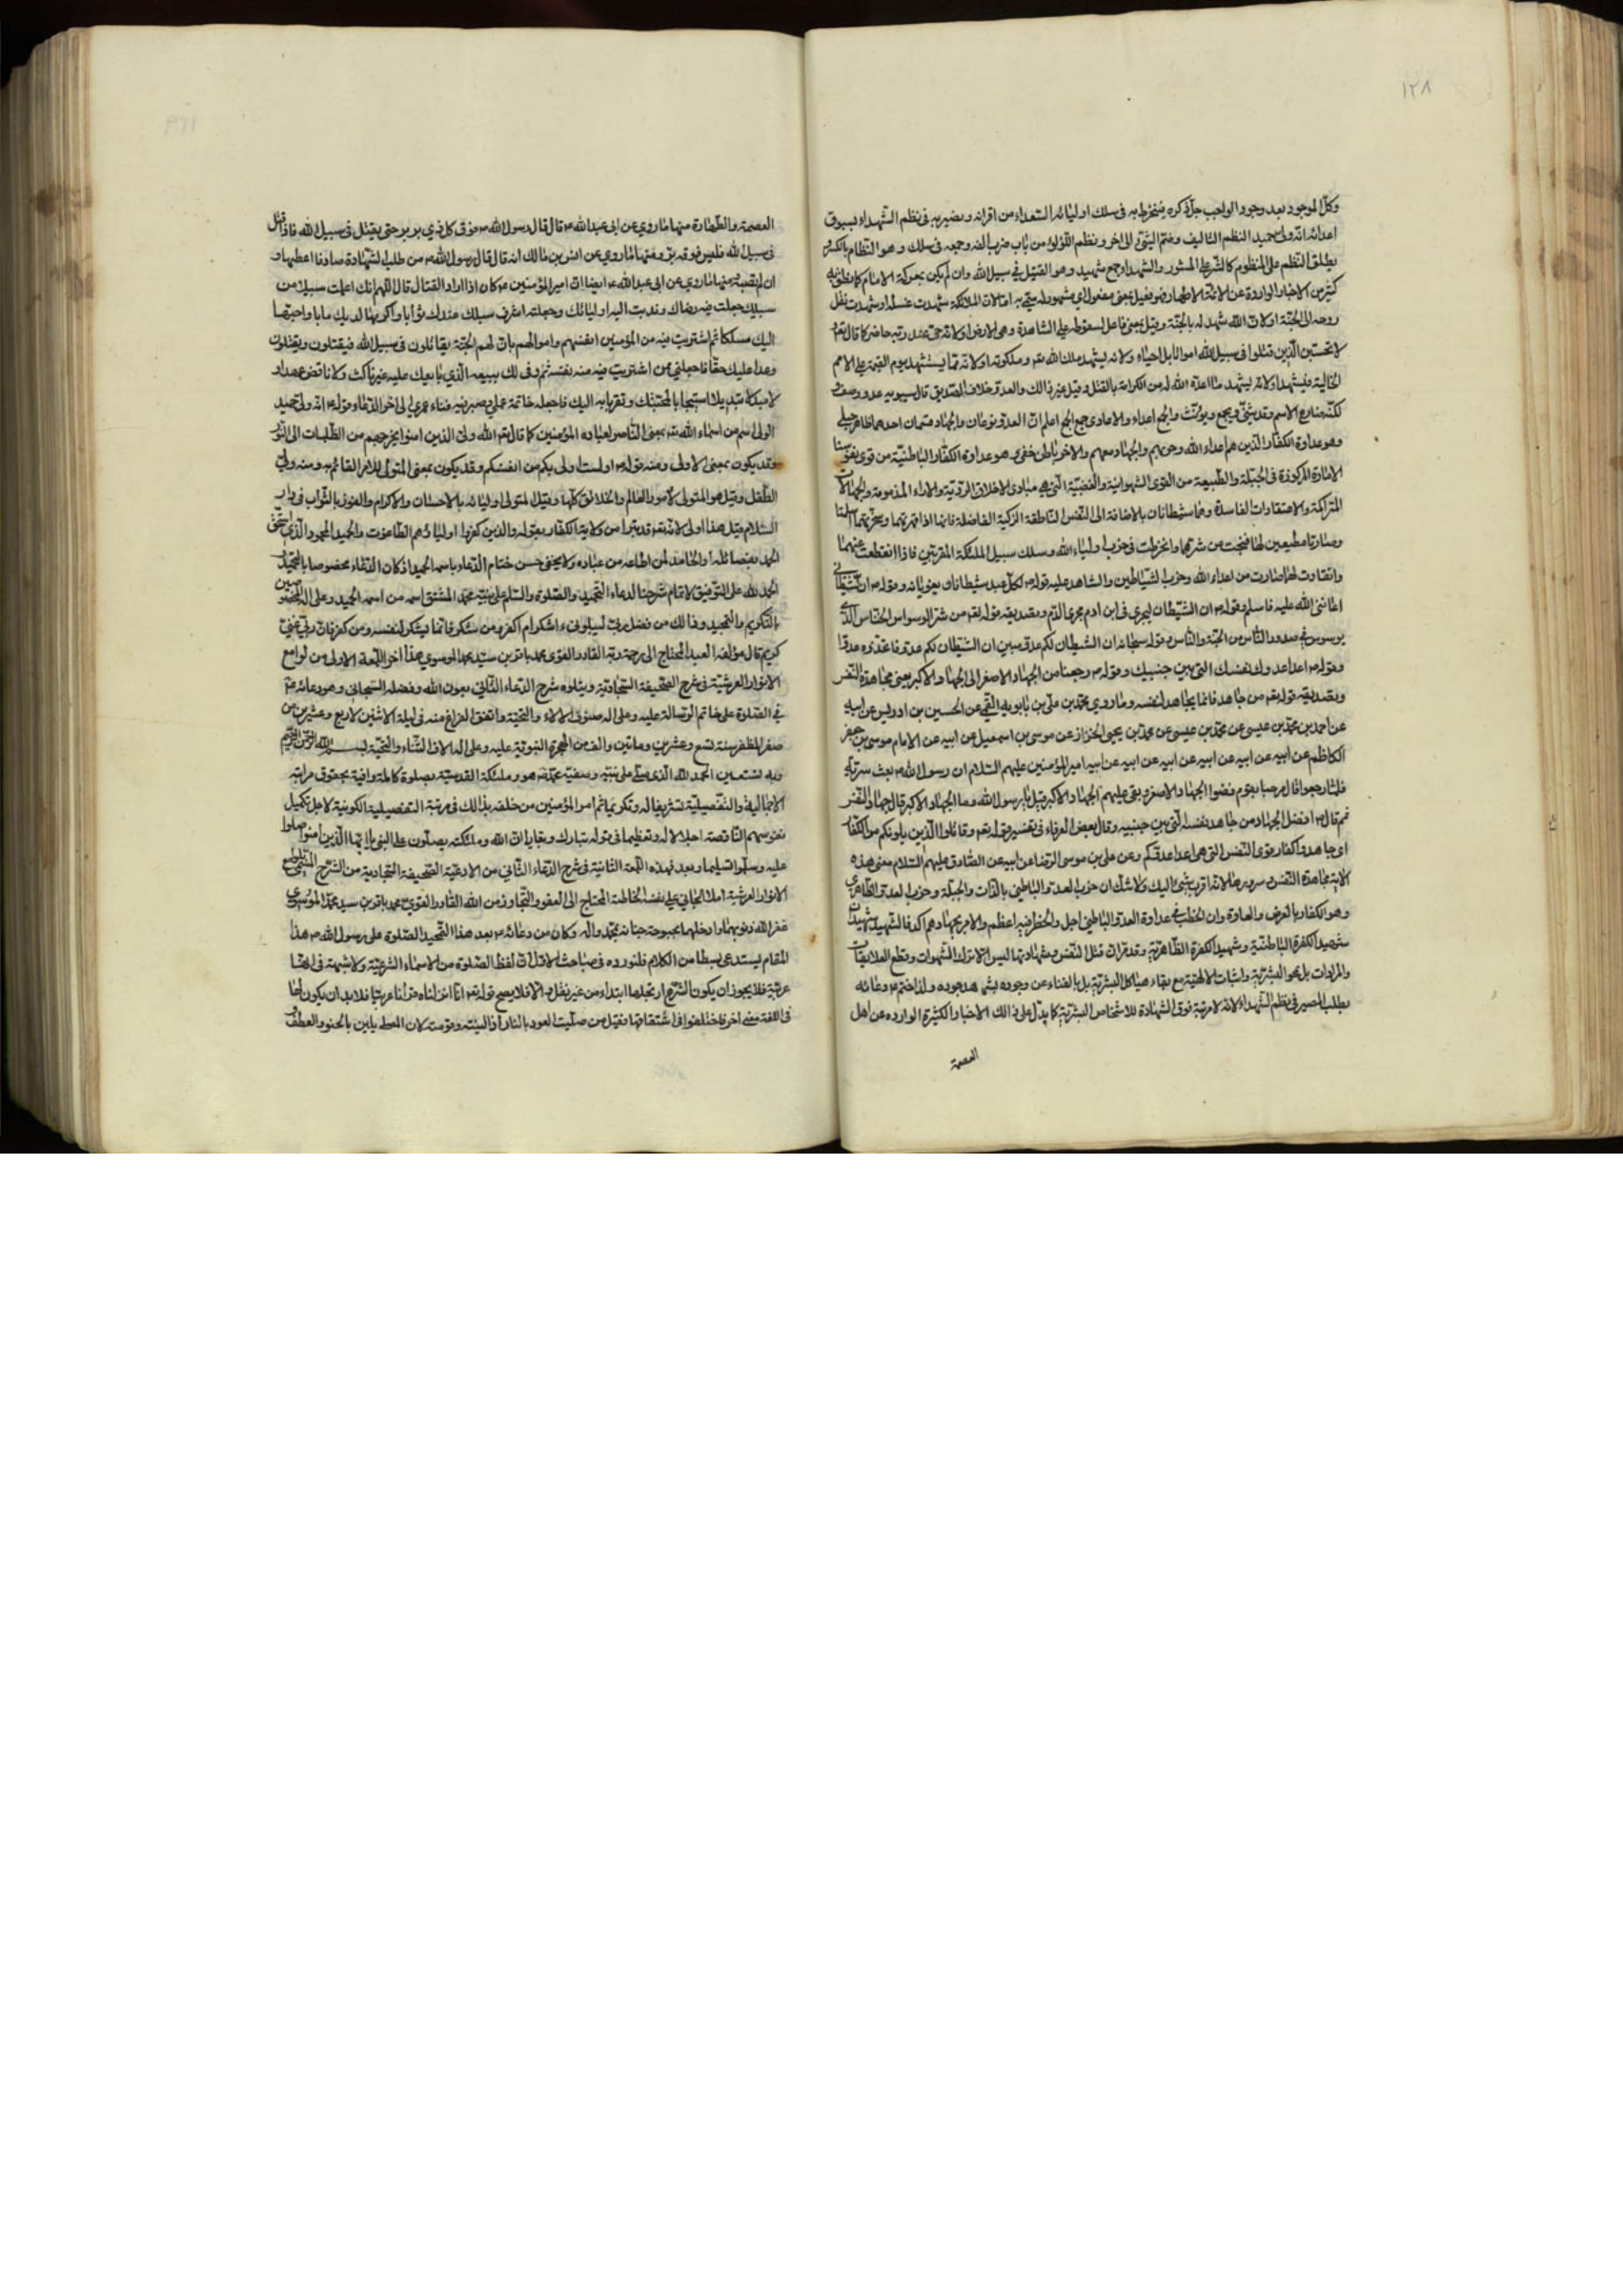 ١٢٨
وكل الموجود بعد وجود الواجب جل ذكره ينخرط به فى سلك اوليائه السعداء من اقرانه ويصير به فى نظم الشهداء بسيوف
اعدائه انه ولى حميد النظم التاليف وضم الشئ الى اخر ونظم اللؤلؤ من باب ضرب الفه وجمعه فى سلك وهو النظام بالكسر
يطلق النظم على المنظوم كالنثر على المنثور والشهداء جمع شهيد وهو القتيل في سبيل الله وان لم يكن بمعركة الامام كما نطق به
كثير من الاخبار الواردة عن الائمة الاطهار فهو فعيل بمعنى مفعول اي مشهود له سمي به اما لان الملائكة شهدت غسله او شهدت نقل
روحه الى الجنة او لان الله شهد له بالجنة وقيل بمعنى فاعل لسقوطه على الشاهدة وهى الارض او لانه حي عند ربه حاضر كما قال تعالى
لا تحسبن الذين قتلوا فى سبيل الله امواتا بل احياء ولانه يشهد ملك الله تعه وملكوته او لانه ممن يستشهد يوم القيمة على الامم
الخالية فيشهد او لانه يشهد ما اعده الله له من الكرامة بالقتل وقيل غير ذالك والعدو خلاف الصديق قال سيبويه عدو وصف
لكنه ضارع الاسم وقد يثنى ويجمع ويؤنث والجمع اعداء والاعادى جمع الجمع اعلم ان العدو نوعان والجهاد قسمان احدهما ظاهر جلي
وهو عداوة الكفار الذين هم اعداء الله وحربهم والجهاد معهم والاخر باطن خفي وهو عداوة الكفار الباطنية من قوى نفوسنا
الامارة المركوزة فى الجبلة والطبيعة من القوى الشهوانية والغضبية التى هي مبادى الاخلاق الردية والاراء المذمومة والجهالات
المتراكمة والاعتقادات الفاسدة وهما شيطانان بالاضافة الى النفس الناطقة الزكية الفاضلة فانها اذا قهرتهما وسخرتهما اسلما
وصارتا مطيعين لها فنجت من شرهما وانخرطت فى حزب اولياء الله وسلك سبيل الملئكة المقربين فاذا انقطعت عنهما
وانقادت لها صارت من اعداء الله وحزب الشياطين والشاهد عليه قوله ص لكل عبد شيطانان يغويانه وقوله ص ان شيطاني
اعانني الله عليه فاسلم وقوله ص ان الشيطان ليجرى فى ابن ادم مجرى الدم وتصديقه قوله تعه من شر الوسواس الخناس الذي
يوسوس في صدور الناس من الجنة والناس وقوله سبحانه ان الشيطان لكم عدو مبين ان الشيطان لكم عدو فاتخذوه عدوا
وقوله ص اعدا عدوك نفسك التى بين جنبيك وقوله ص رجعنا من الجهاد الاصغر الى الجهاد الاكبر يعنى مجاهدة النفس
وتصديقه قوله تعه من جاهد فانما يجاهد لنفسه وما روي محمد بن على بن بابويه القمي عن الحسين بن ادريس عن ابيه
عن احمد بن محمد بن عيسى عن محمد بن يحيى الخزاز عن موسى بن اسمعيل عن ابيه عن الامام موسى بن جعفر
الكاظم عن ابيه عن ابيه عن ابيه عن ابيه عن ابيه امير المؤمنين عليهم السلام ان رسول الله ص بعث سرية
فلما رجعوا قال مرحبا بقوم قضوا الجهاد الاصغر وبقى عليهم الجهاد الاكبر قيل يا رسول الله وما الجهاد الاكبر قال جهاد النفس
ثم قال ص افضل الجهاد من جاهد نفسه التى بين جنبيه وقال بعض العرفاء فى تفسير قوله تعه وقاتلوا الذين يلونكم من الكفار
اى جاهدوا كفار قوى النفس التى هى اعدا عدوكم وعن على بن موسى الرضا عن ابيه عن الصادق عليهم السلام معنى هذه
الاية مجاهدة النفس لانها اقرب شئ اليك ولا شك ان حرب العدو الباطني بالذات والجبلة وحرب العدو الظاهري
وهو الكفار بالعرض والعداوة وان الخطب فى عداوة العدو الباطني اجل والخطر فيه اعظم والامر بجهادهم اكد فالشهيد شهيدان
شهيد الكفرة الباطنية وشهيد الكفرة الظاهرية وقد مر ان قتل النفس وشهادتها ليس الا ترك الشهوات وقطع العلايقات
والمرادات بل محو البشرية واثبات الالهية مع بقاء هياكل البشرية بل بالفناء عن وجوده بشهود وجوده ولذا ختم ع دعائه
بطلب المصير فى نظم الشهداء لانه لا مرتبة فوق الشهادة للاشخاص البشرية كما يدل على ذالك الاخبار الكثيرة الواردة عن اهل
العصمة
العصمة والطهارة منها ما روي عن ابى عبد الله ع قال قال رسول الله ص فوق كل ذي بر بر حتى يقتل فى سبيل الله فاذا قتل
فى سبيل الله فليس فوقه بر ومنها ما روي عن انس بن مالك انه قال قال رسول الله ص من طلب الشهادة صادقا اعطيها و
ان لم تصبه ومنها ما روي عن ابى عبد الله ع ايضا ان امير المؤمنين ع كان اذا اراد القتال قال اللهم انك اعلمت سبيلا من
سبلك جعلت فيه رضاك وندبت اليه اوليائك وجعلته اشرف سبلك عندك ثوابا واكرمها لديك مابا واحبها
اليك مسلكا ثم اشتريت فيه من المؤمنين انفسهم واموالهم بان لهم الجنة يقاتلون فى سبيل الله فيقتلون ويقتلون
وعدا عليك حقا فاجعلني ممن اشتريت فيه منه نفسه ثم وفى لك ببيعه الذي بايعك عليه غير ناكث ولا ناقض عهدا و
لا مبدلا تبديلا استيجابا لمحبتك وتقربا به اليك فاجعله خاتمة عملي وصير فيه فناء عمري الى اخر الدعاء وقوله ع انه ولى حميد
الولى اسم من اسماء الله تعه بمعنى الناصر لعباده المؤمنين كما قال تعه الله ولى الذين امنوا يخرجهم من الظلمات الى النور
وقد يكون بمعنى الاولى ومنه قوله ص الست اولى بكم من انفسكم وقد يكون بمعنى المتولى للامر القائم به ومنه ولي
الطفل وقيل هو المتولى لامور العالم والخلائق كلها وقيل المتولى اوليائه بالاحسان والاكرام والفوز بالثواب فى دار
السلام قيل هذا اولى لانه تعه قد تبرا من ولاية الكفار بقوله والذين كفروا اولياؤهم الطاغوت والحميد المحمود الذي استحق
الحمد بفعاله او الحامد لمن اطاعه من عباده ولا يخفى حسن ختام الدعاء باسم الحميد اذ كان الدعاء مخصوصا بالتحميد
الحمد لله على التوفيق لاتمام شرحنا لدعاء التحميد والصلوة والسلم على نبيه محمد المشتق اسمه من اسمه الحميد وعلى اله المخصوصين
بالتكريم والتمجيد وذالك من فضل ربي ليبلوني ءاشكر ام اكفر ومن شكر فانما يشكر لنفسه ومن كفر فان ربي غني
كريم قال مؤلفه العبد المحتاج الى رحمة ربه القادر القوى محمد باقر بن سيد محمد الموسوي هذا اخر اللمعة الاولى من لوامع
الانوار العرشية فى شرح الصحيفة السجادية ويتلوه شرح الدعاء الثاني بعون الله وفضله السبحانى وهو دعائه ع
في الصلوة على خاتم الرسالة عليه وعلى اله صنوف الالاء والتحية واتفق الفراغ منه فى ليلة الاثنين لاربع وعشرين من
صفر المظفر سنة تسع وعشرين وماتين والف من الهجرة النبوية عليه وعلى اله الاف الثناء والتحية بسم الله الرحمن الرحيم
وبه نستعين الحمد لله الذى صلى على نبيه وصفيه محمد ص هو وملئكته القدسية بصلوة كاملة وافية بحقوق مراتبه
الاجمالية والتفصيلية تشريفا له وتكريما ثم امر المؤمنين من خلقه بذالك فى مرتبة التفصيلية الكونية لاجل تكميل
نفوسهم الناقصة اجلالا له وتعظيما فى قوله تبارك وتعالى ان الله وملئكته يصلون على النبى يا ايها الذين امنوا صلوا
عليه وسلموا تسليما وبعد فهذه اللمعة الثانية فى شرح الدعاء الثاني من الادعية الصحيفة السجادية من الشرح المسمى بلوامع
الانوار العرشية املاء الجاني على نفسه الخاطئة المحتاج الى العفو والتجاوز من الله القادر القوي محمد باقر بن سيد محمد الموسوي
غفر الله ذنوبهما وادخلهما بحبوحة جنانه بمحمد واله وكان من دعائه ع بعد هذا التحميد الصلوة على رسول الله ص هذا
المقام يستدعى بسطا من الكلام فلنورده فى مباحث الاول ان لفظ الصلوة من الاسماء الشرعية ولا شبهة فى انها
عربية فلا يجوز ان يكون الشرع ارتجلها ابتداء من غير نقل والا فلا يصح قوله تعه انا انزلناه قرانا عربيا فلا بد ان يكون لها
فى اللغة معنى اخر فاختلفوا فى اشتقاقها فقيل من صليت العود بالنار اذا لينته وقومته لان المصلى يلين بالحنو والعطف